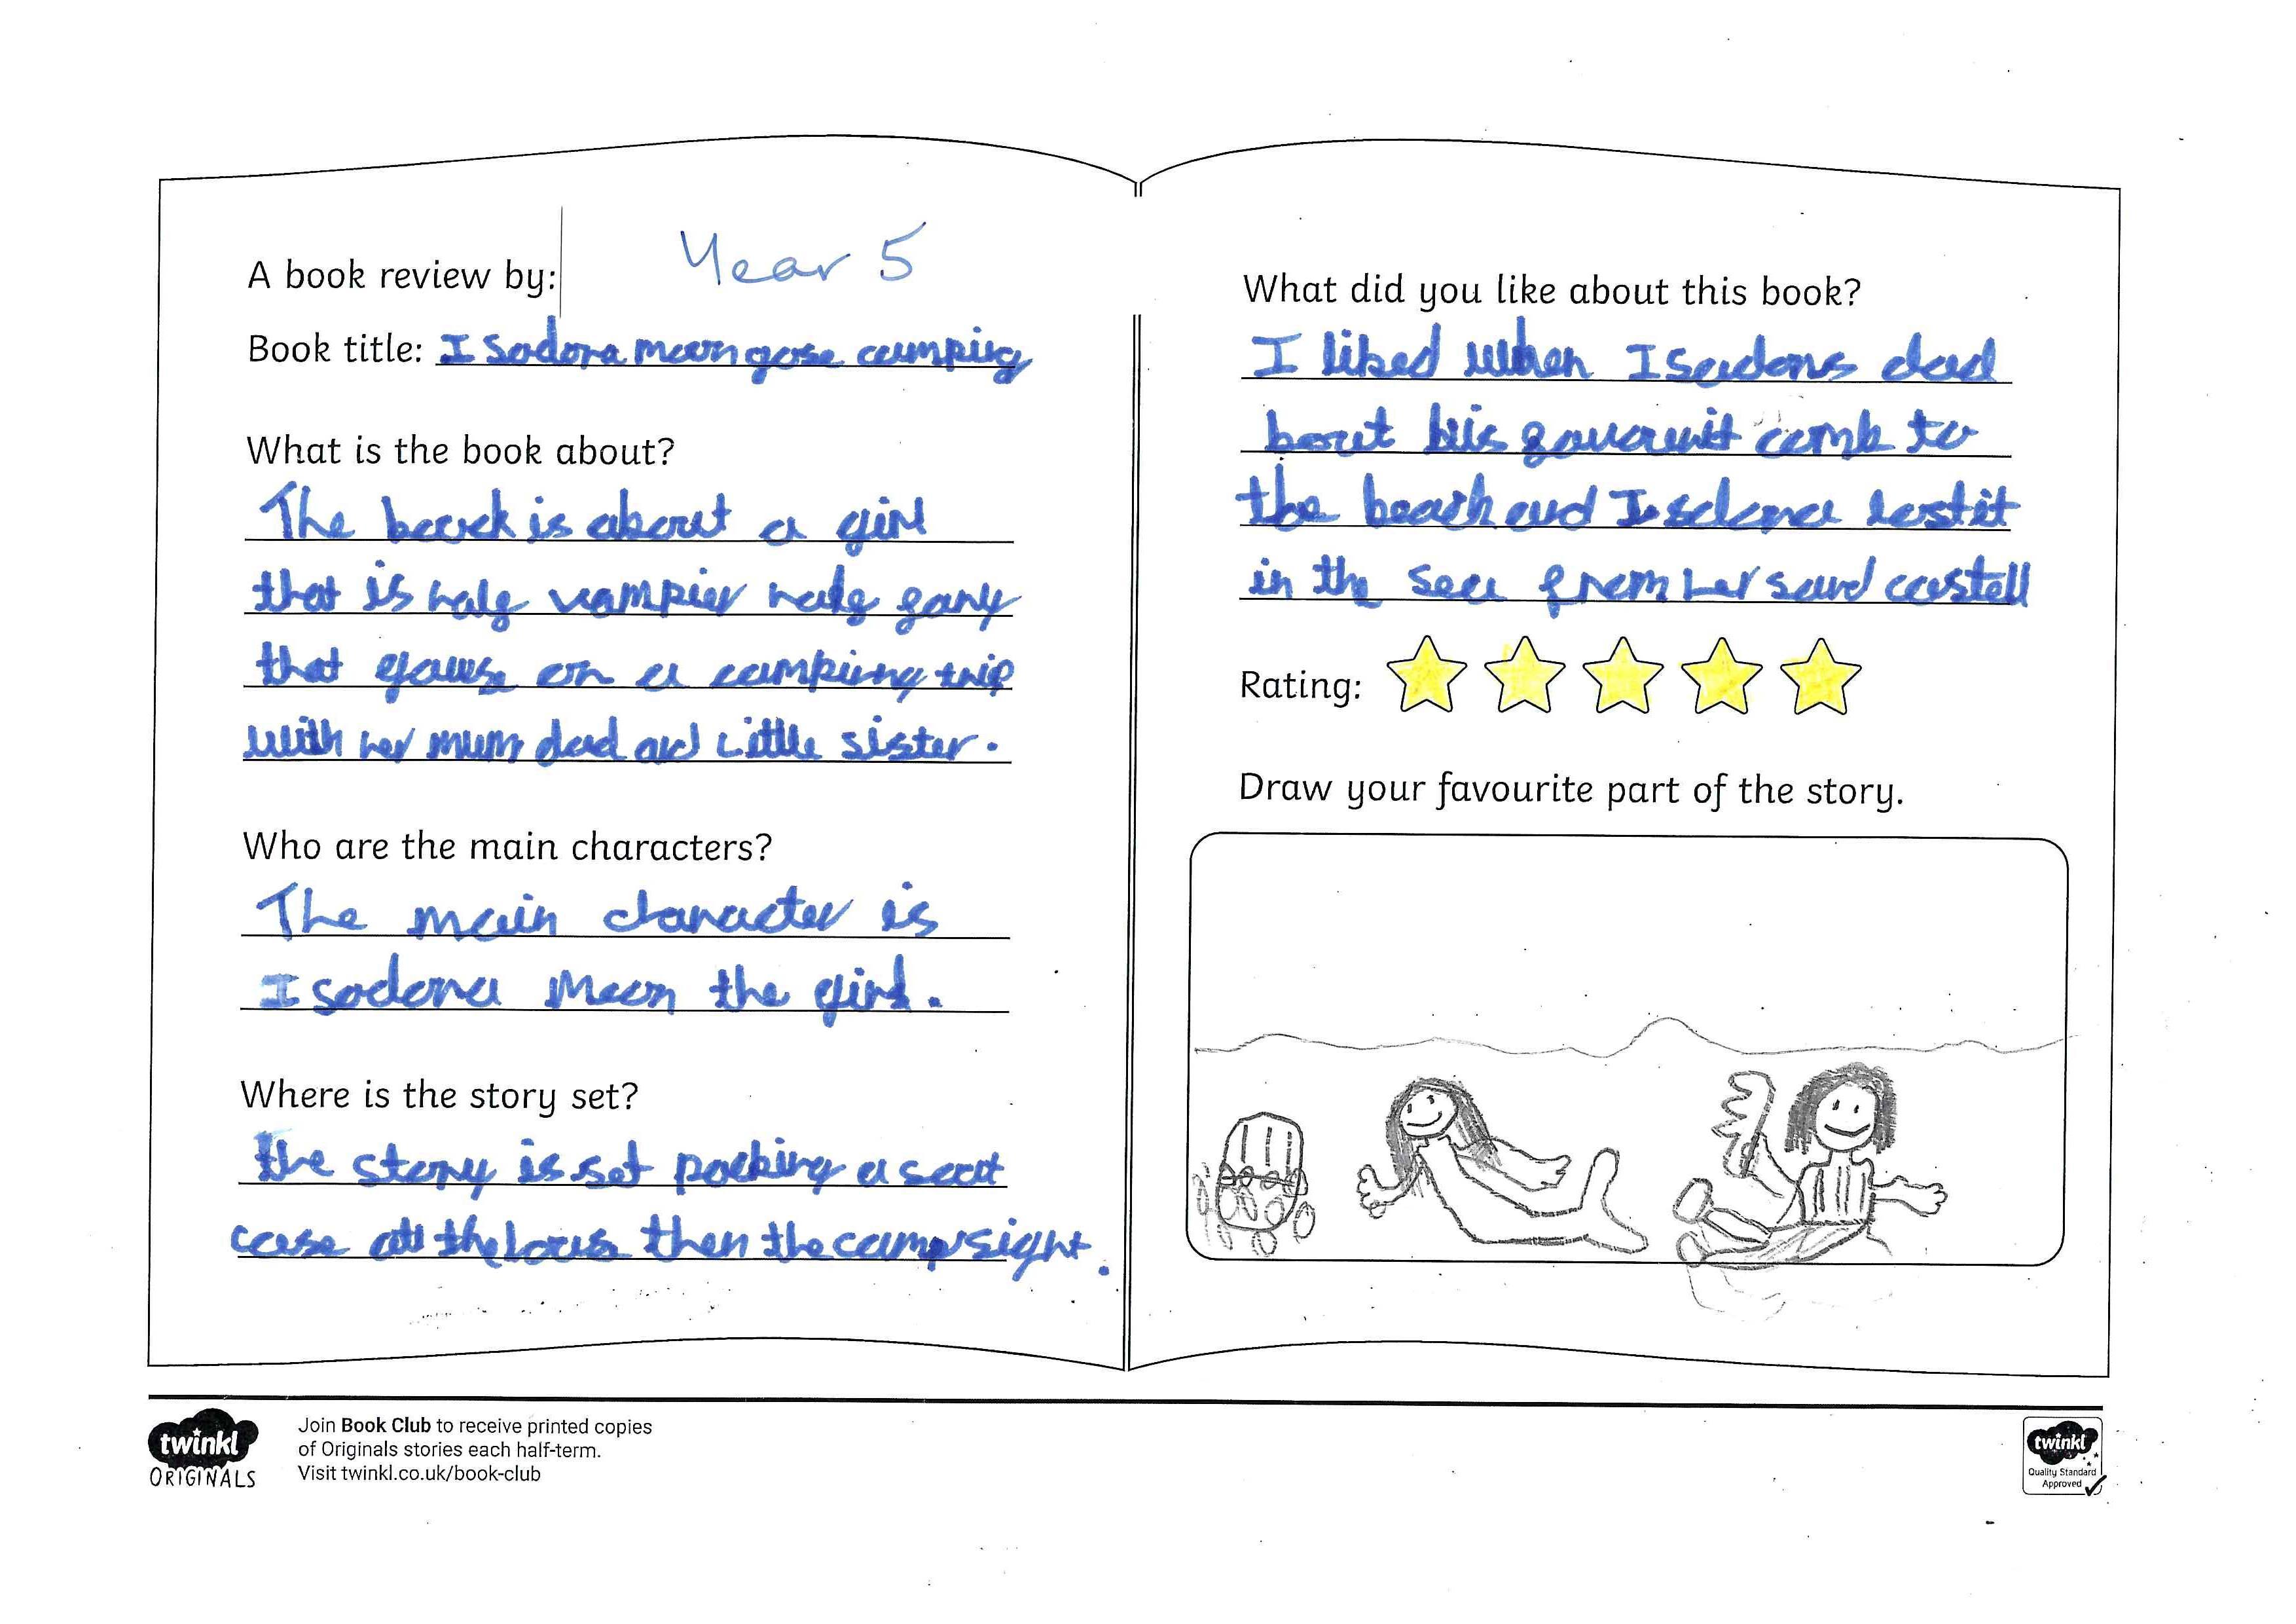 A book review by: Year 5
Book title: Isadora moon gose camping
What is the book about?
The boock is about a girl
that is half vampier half
that gowse on a camping trip
with her mum dad and little sister.
Who are the main characters?
The main character is
Isadora Moon the girl.
Where is the story set?
the story is set packing a
case at the then the campsight.
What did you like about this book?
I liked when Isadoras dad
his comb to
the beach and lost it
in the sea from her sand castell
Rating:
Draw your favourite part of the story.
twinkl
ORIGINALS
Join Book Club to receive printed copies
of Originals stories each half-term.
Visit twinkl.co.uk/book-club
twinkl
Quality Standard
Approved